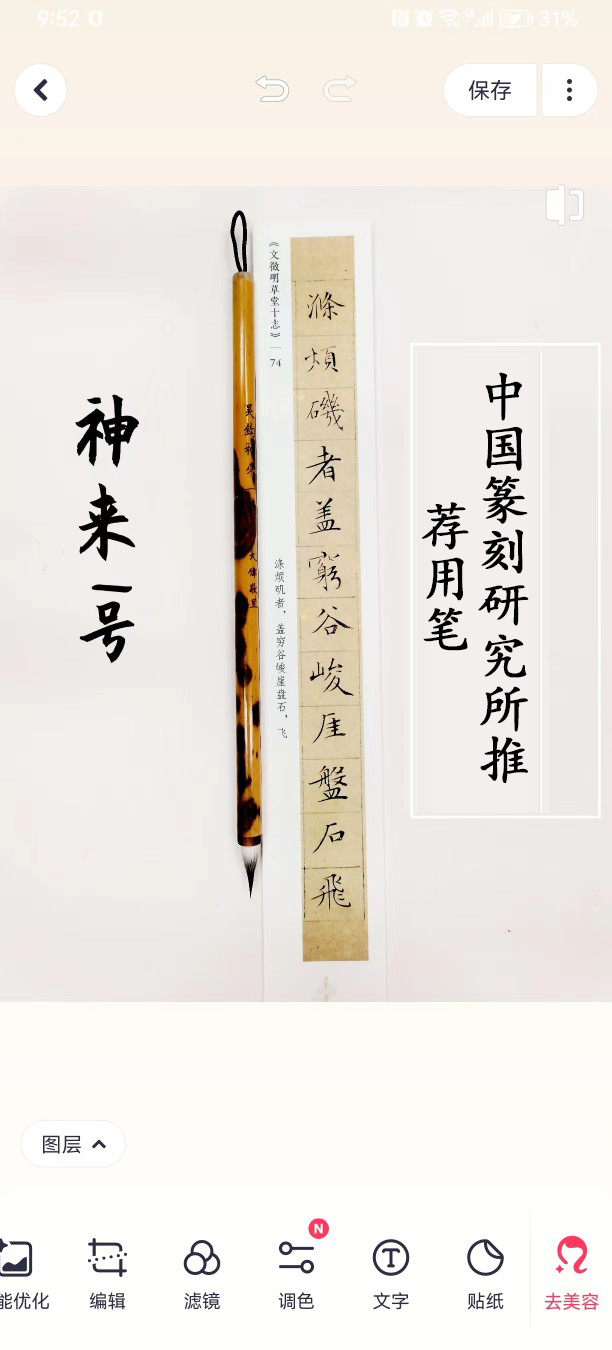 9:52
31%
保存
神来一号
《文徵明草堂十志》
74
滌煩磯者盖窮谷峻厓盤石飛
涤烦矶者，盖穷谷峻崖盘石，飞
中国篆刻研究所推
荐用笔
图层
能优化
编辑
滤镜
N
调色
文字
贴纸
去美容